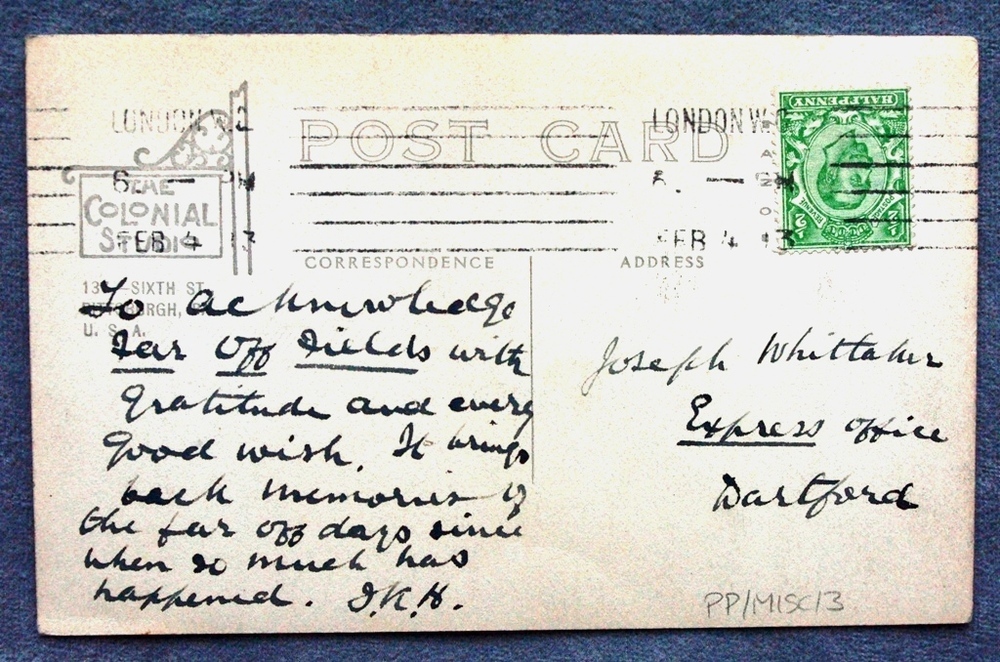 LONDON W.C
POST CARD
LONDON W.C
HALFPENNY
THE
COLONIAL
STUDIO
FEB 4 13
FEB 4 13
POSTAGE
REVENUE
CORRESPONDENCE
ADDRESS
SIXTH ST
PITTSBURGH,
U. S. A.
To acknowledge
Far Off Fields with
gratitude and every
good wish. It brings
back memories of
the far off days since
when so much has
happened. J.K.H.
Joseph Whittaker
Express office
Dartford
PP/MISC/3